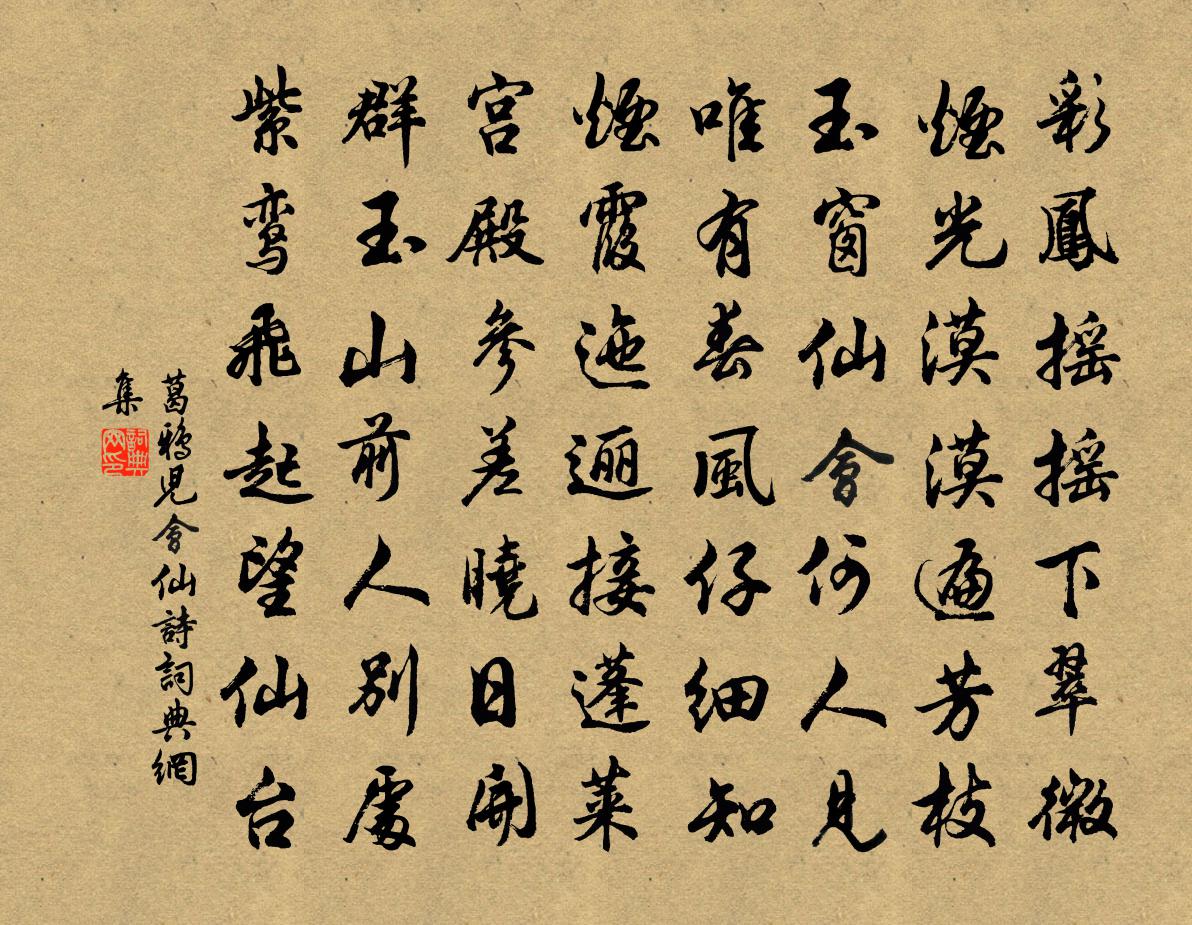 彩鳳搖搖下翠微
煙光漠漠遍芳枝
玉窗仙會何人見
唯有春風仔細知
煙霞迤逦接蓬萊
宮殿參差曉日開
群玉山前人別處
紫鸾飛起望仙台
葛鴉兒會仙詩詞典網
集
詞典网印